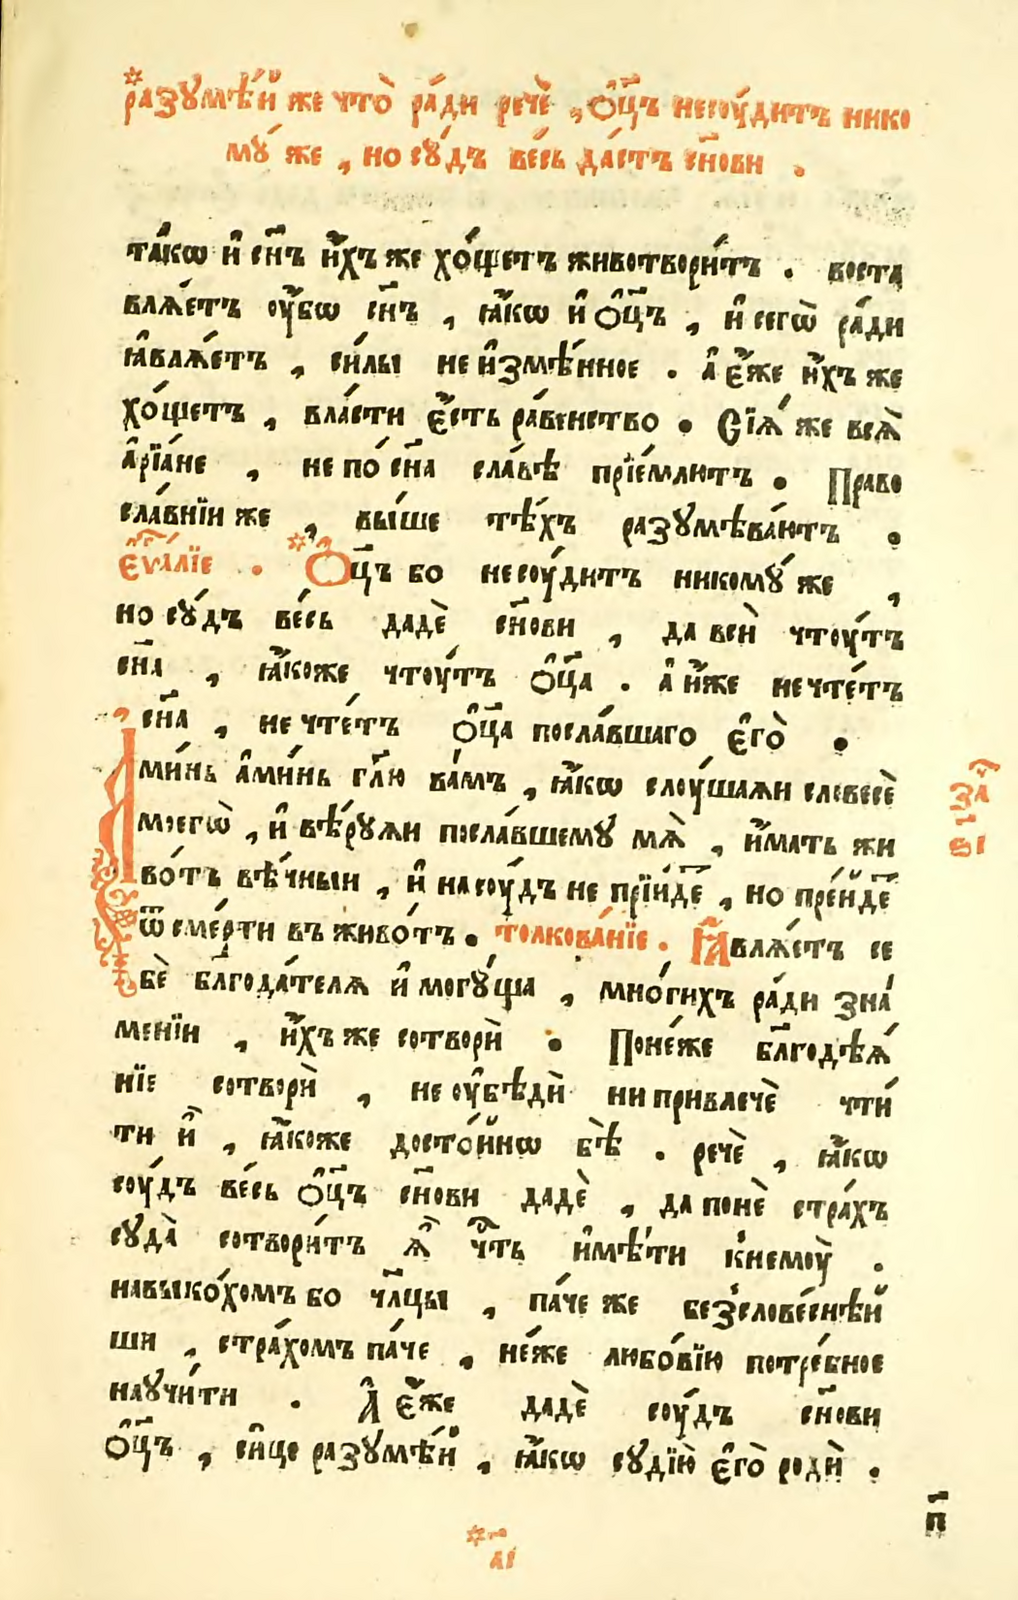 разꙋмѣ́й же что̀ ра́ди речѐ , ѻ҆ц҃ъ несоу́дитъ нико
мꙋ́ же , но сꙋ́дъ ве́сь да́стъ сн҃ови .
та́кѡ и҆ сн҃ъ и҆́хъ же хо́щетъ животвори́тъ . воста
влѧ́етъ оу҆́бѡ сн҃ъ , ꙗ҆́кѡ и҆ ѻ҆ц҃ъ , и҆ сегѡ̀ ра́ди
ꙗ҆влѧ́етъ , си́лы не и҆змѣ́нное . а҆ є҆́же и҆́хъ же
хо́щетъ , вла́сти є҆́сть ра́венство . Сїѧ́ же всѧ̀
а҆рїа́не , не по сн҃а сла́вѣ прїе́млютъ . Право
сла́внїи же , вы́ше тѣ́хъ разꙋмѣва́ютъ .
є҆ѵⷢ҇а́лїе . Ѻ҆ц҃ъ бо несоу́дитъ никомꙋ́ же ,
но сꙋ́дъ ве́сь дадѐ сн҃ови , да всѝ чтоу́тъ
сн҃а , ꙗ҆́коже чтоу́тъ ѻ҆ц҃а . а҆ и҆́же не чте́тъ
сн҃а , не чте́тъ ѻ҆ц҃а посла́вшаго є҆го̀ .
А҆ми́нь а҆ми́нь гл҃ю ва́мъ , ꙗ҆́кѡ слоу́шаѧи словесѐ
моегѡ̀ , и҆ вѣ́рꙋѧи посла́вшемꙋ мѧ̀ , и҆́мать жи
во́тъ вѣ́чныи , и҆ на соу́дъ не прїи́деⷮ , но пре́йдеⷮ
ѿ сме́рти въ живо́тъ . толкова́нїе . Ꙗ҆влѧ́етъ се
бѐ бл҃года́телѧ и҆ могꙋ́ща , мно́гихъ ра́ди зна́
менїи , и҆́хъ же сотворѝ . Поне́же бл҃годѣѧ́
нїе сотворѝ , не оу҆бѣдѝ ни привлечѐ чти́
ти и҆̀ , ꙗ҆́коже досто́йнѡ бѣ̀ . речѐ , ꙗ҆́кѡ
соу́дъ ве́сь ѻ҆ц҃ъ сн҃ови дадѐ , да понѐ стра́хъ
сꙋда̀ сотвори́тъ ѧ҆̀ чⷭ҇ть и҆мѣ́ти к̾немоу̀ .
навыко́хомъ бо чл҃цы , па́че же без̾слове́снѣй
ши , стра́хомъ па́че , не́же любо́вїю потре́бное
наꙋчи́ти . А҆ є҆́же дадѐ соу́дъ сн҃ови
ѻ҆ц҃ъ , си́це разꙋмѣ́й , ꙗ҆́кѡ сꙋдїю̀ є҆го̀ родѝ .
за҄
в҃і
п҃
а҃і